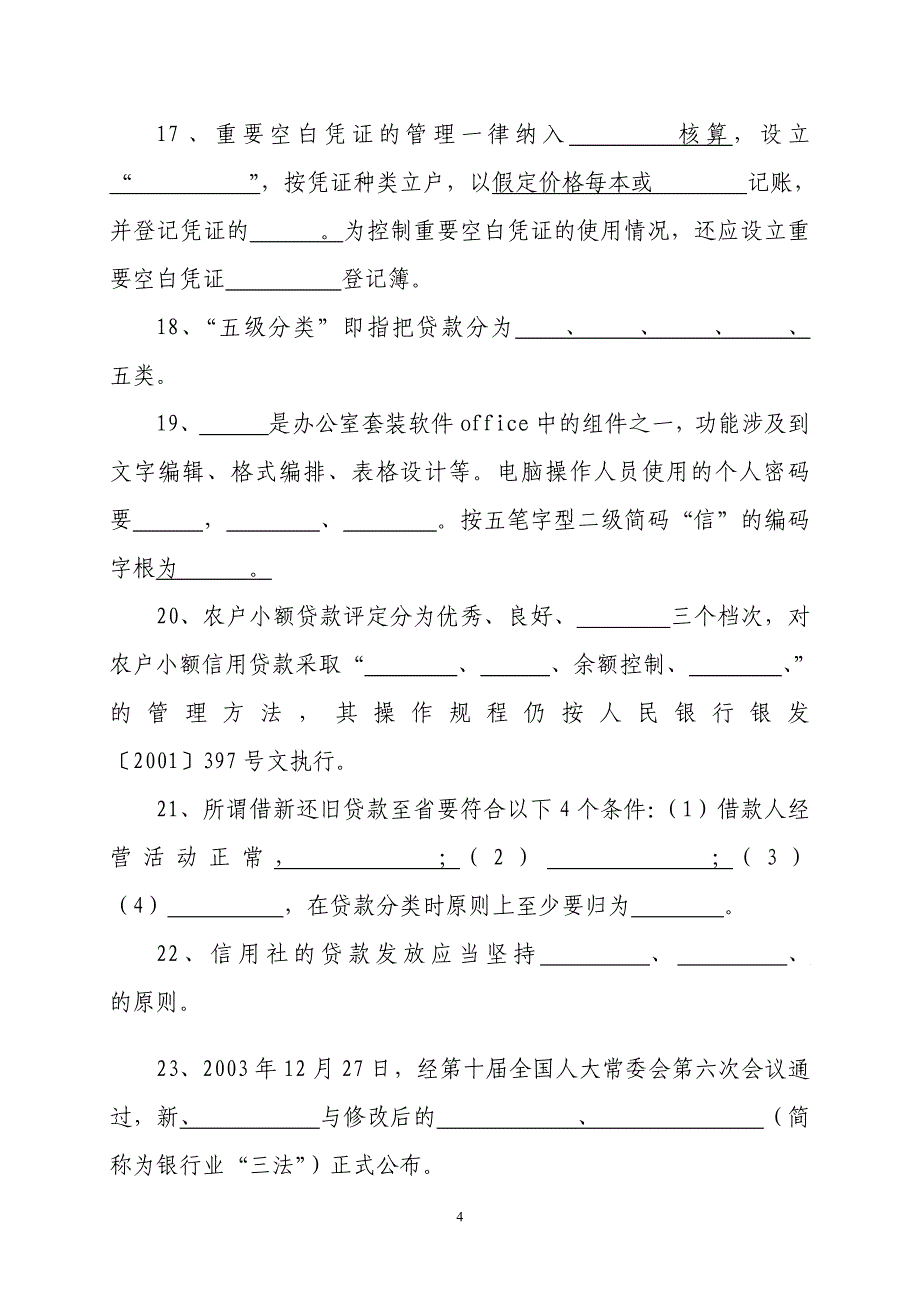 17、重要空白凭证的管理一律纳入________核算，设立
“__________”，按凭证种类立户，以假定价格每本或_______记账，
并登记凭证的______。为控制重要空白凭证的使用情况，还应设立重
要空白凭证__________登记簿。
18、“五级分类”即指把贷款分为____、____、____、____、
五类。
19、______是办公室套装软件office中的组件之一，功能涉及到
文字编辑、格式编排、表格设计等。电脑操作人员使用的个人密码
要______，________、________。按五笔字型二级简码“信”的编码
字根为______。
20、农户小额贷款评定分为优秀、良好、________三个档次，对
农户小额信用贷款采取“________、______、余额控制、________、”
的管理方法，其操作规程仍按人民银行银发
〔2001〕397号文执行。
21、所谓借新还旧贷款至省要符合以下4个条件：（1）借款人经
营活动正常，____________；（2）____________；（3）
（4）__________，在贷款分类时原则上至少要归为________。
22、信用社的贷款发放应当坚持_________、_________、
的原则。
23、2003年12月27日，经第十届全国人大常委会第六次会议通
过，新、__________与修改后的____________、______________（简
称为银行业“三法”）正式公布。
4